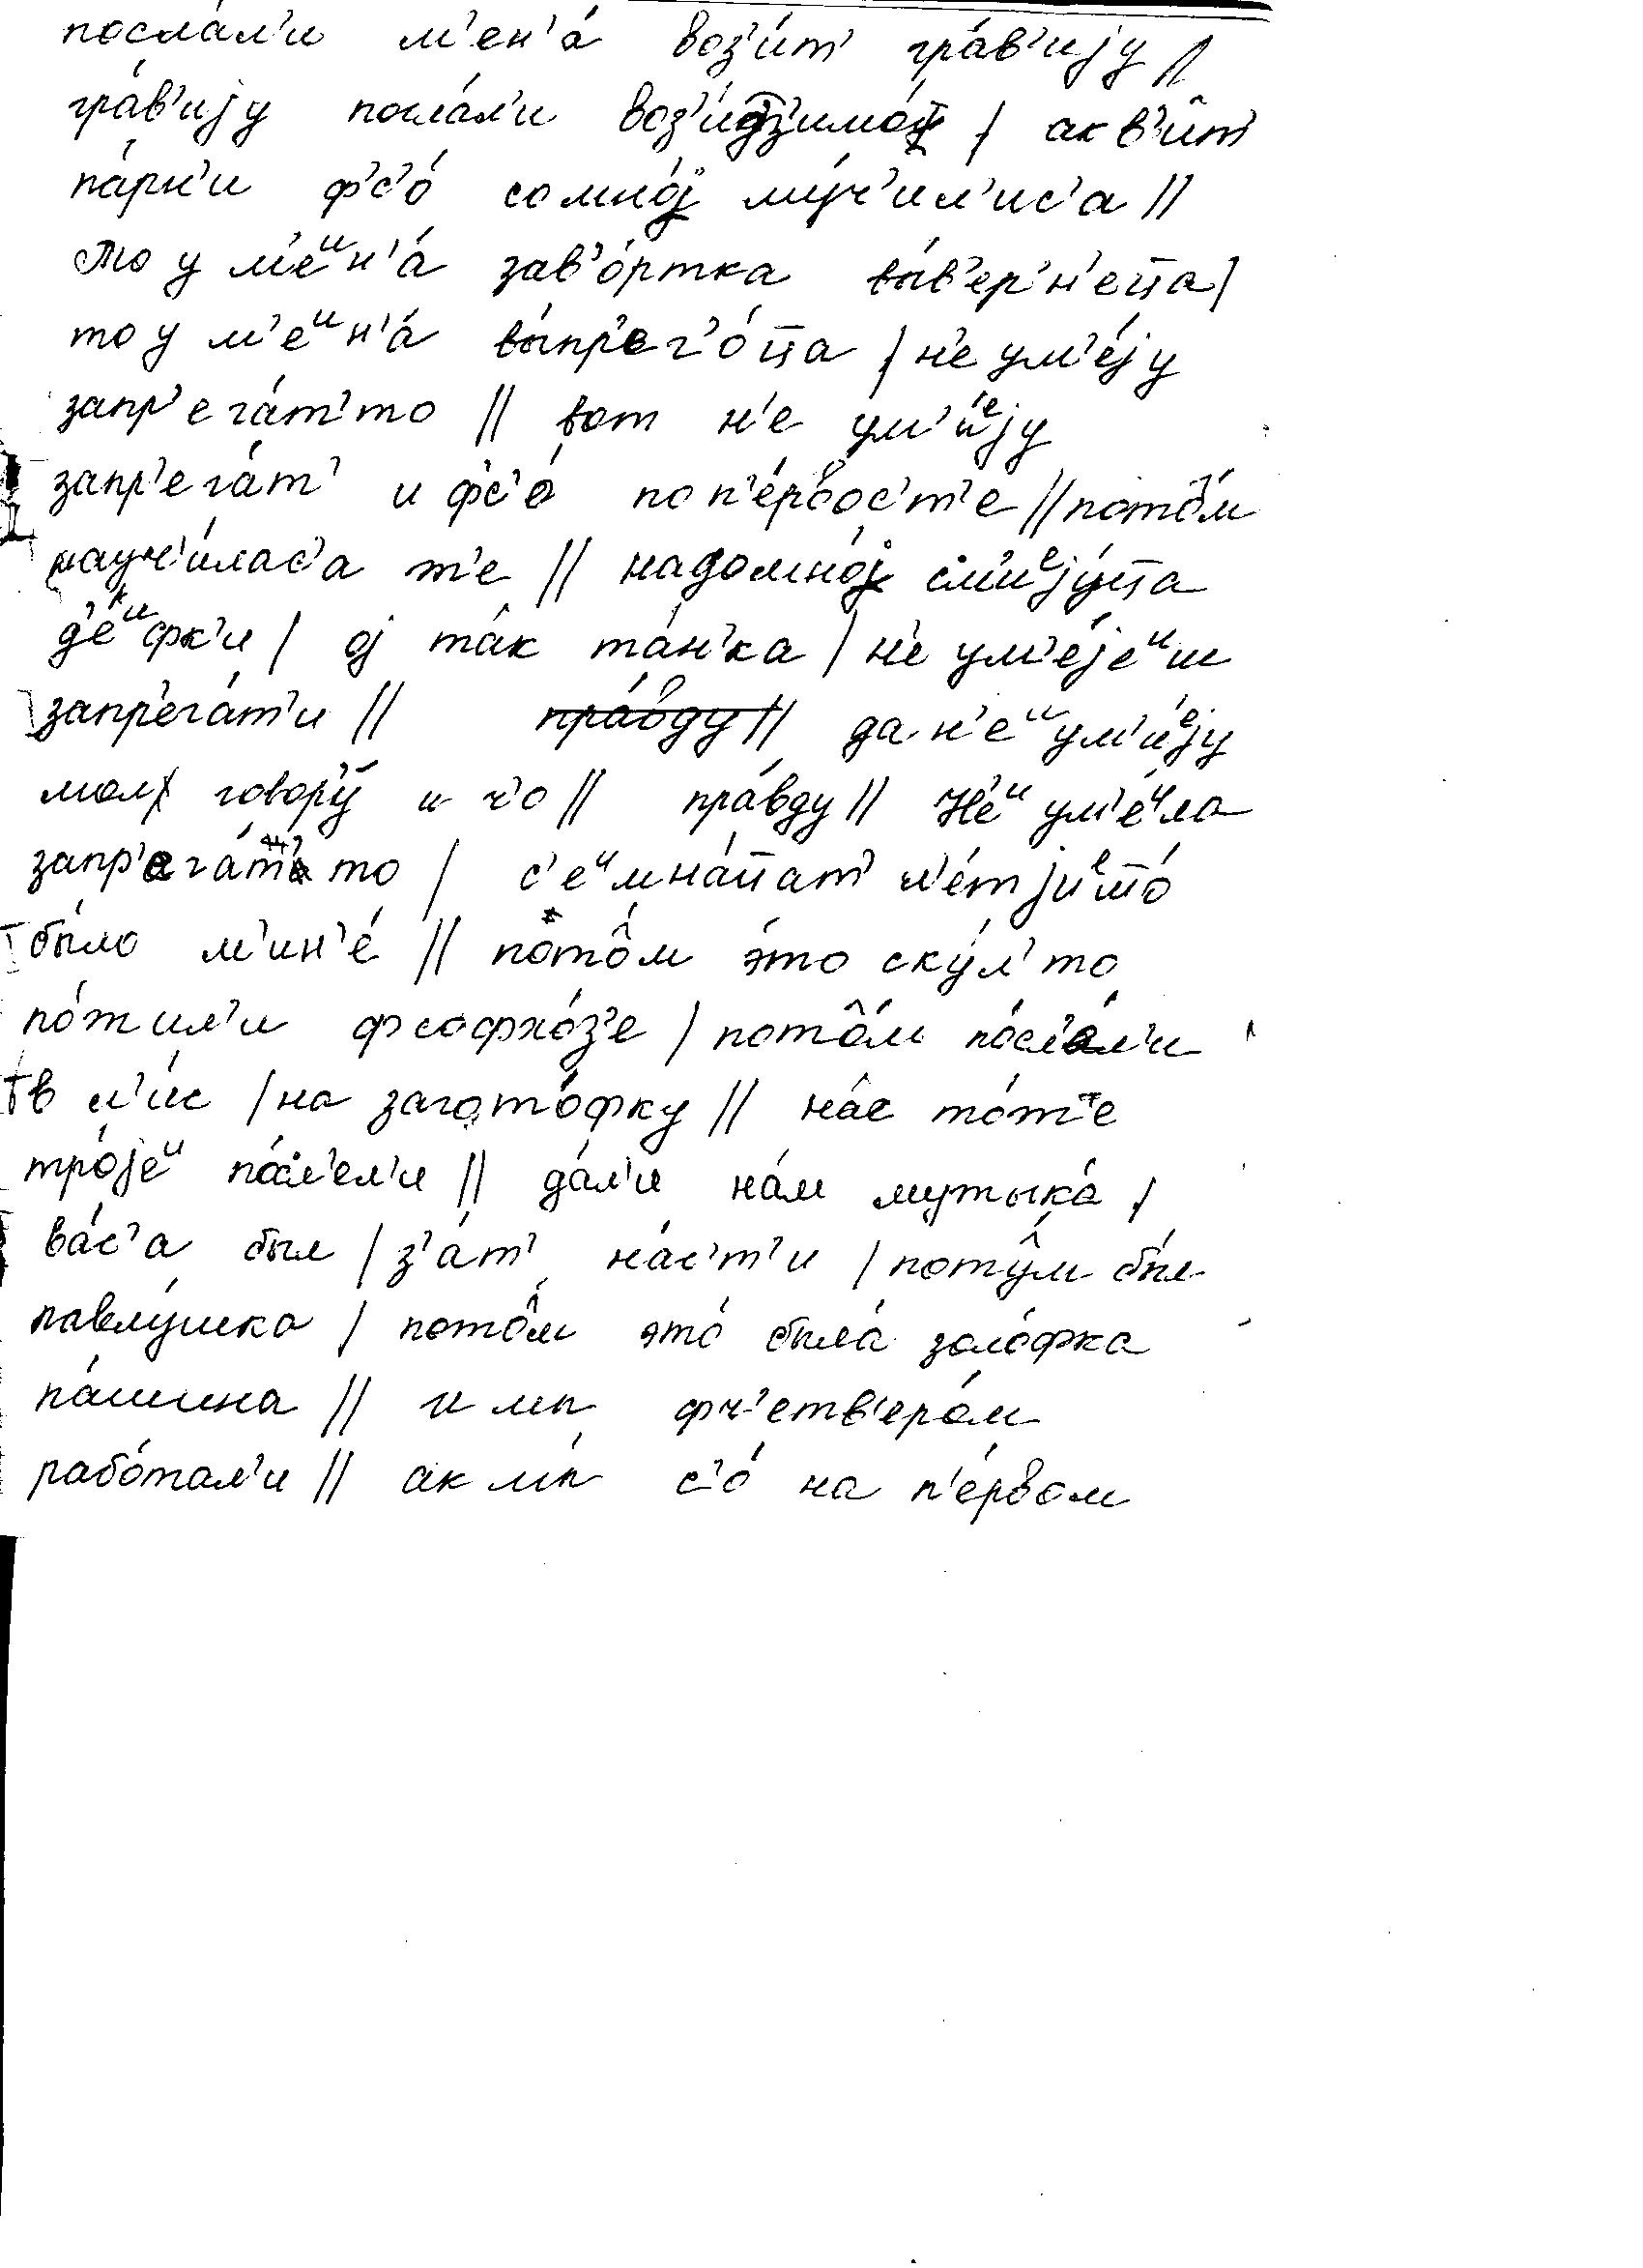 посла́л'и м'ен'а́ воз'и́т' гра́в'иjу //
гра́в'иjу посла́л'и воз'и́дз'имо́j / ак в'и̂т'
па́рн'и ф'с'о́ со мно́j му́ч'ил'ис'а //
то у м'еᶦн'а́ зав'о́ртка вы́в'ер'н'еца /
то у м'еᶦн'а́ вы́пр'ег'о́ца / н'е ум'е́jу
запр'ега́т' то // вот н'е ум'и́ᵉjу
запр'ега́т' и ф'с'о́ по п'е́рвос'т'е // пото̂м
науч'и́лас'а т'е // надо мно́j с'м'иᵉjу́ца
д'е́ᶦфк'и / оj та́к та́н'ка / н'е ум'е́jеᶦш
запр'ега́т'и // ~~пра́вду //~~ да н'еᶦ ум'и́ᵉjу
мол говор'у́ и ч'о // пра́вду // н'еᶦ ум'е́ᶦла
запр'ега́т' то / с'еᶦмна́цат' л'е́т jиᵉшо́
бы́ло м'ин'е́ // пото̂м э́то ску́л' то
по́жил'и фсофхо́з'е / пото̂м по́сл'ал'и
в л'и́с / на загото́фку // на́с то́же
тро́jеᶦ по́сл'ел'и // да́л'и на́м мутыка́ /
ва́с'а был / з'а́т' на́с'т'и / поту̂м бы́л
павлу́шка / пото̂м э́то была́ золо́фка
па́шина // и мы фч'етв'еро́м
рабо́тал'и // ак мы́ с'о́ на п'е́рвом